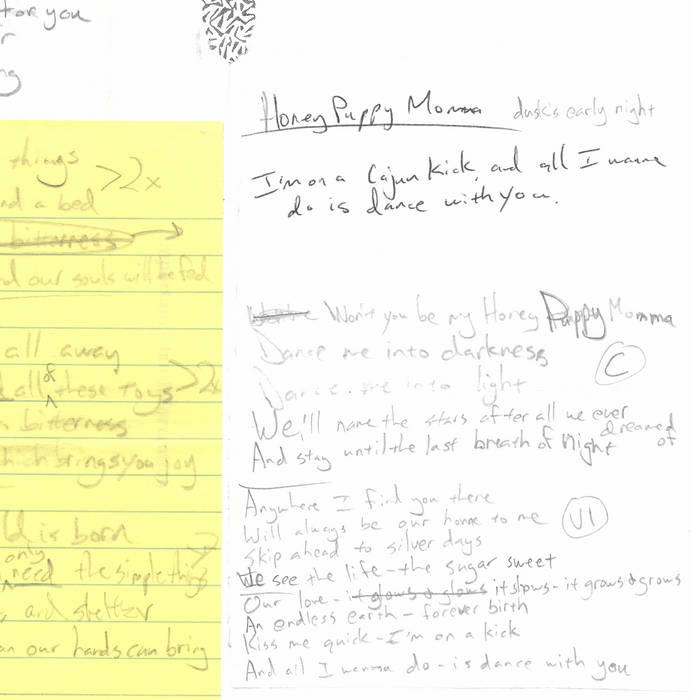 for you
r
ng
things >2x
nd a bed
bitterness
nd our souls will be fed
all away
all of these toys >2x
bitterness
which brings you joy
ld is born
only
need the simple things
, and shelter
an our hands can bring
Honey Puppy Momma dusk's early night
I'm on a Cajun Kick, and all I wanna
do is dance with you.
Won't you be my Honey Puppy Momma
Dance me into darkness
C
Dance me into light
We'll name the stars after all we ever dreamed of
And stay until the last breath of night
Anywhere I find you there
Will always be our home to me
V1
Skip ahead to silver days
We see the life - the sugar sweet
Our love - it glows & glows it shows - it grows & grows
An endless earth - forever birth
Kiss me quick - I'm on a kick
And all I wanna do - is dance with you